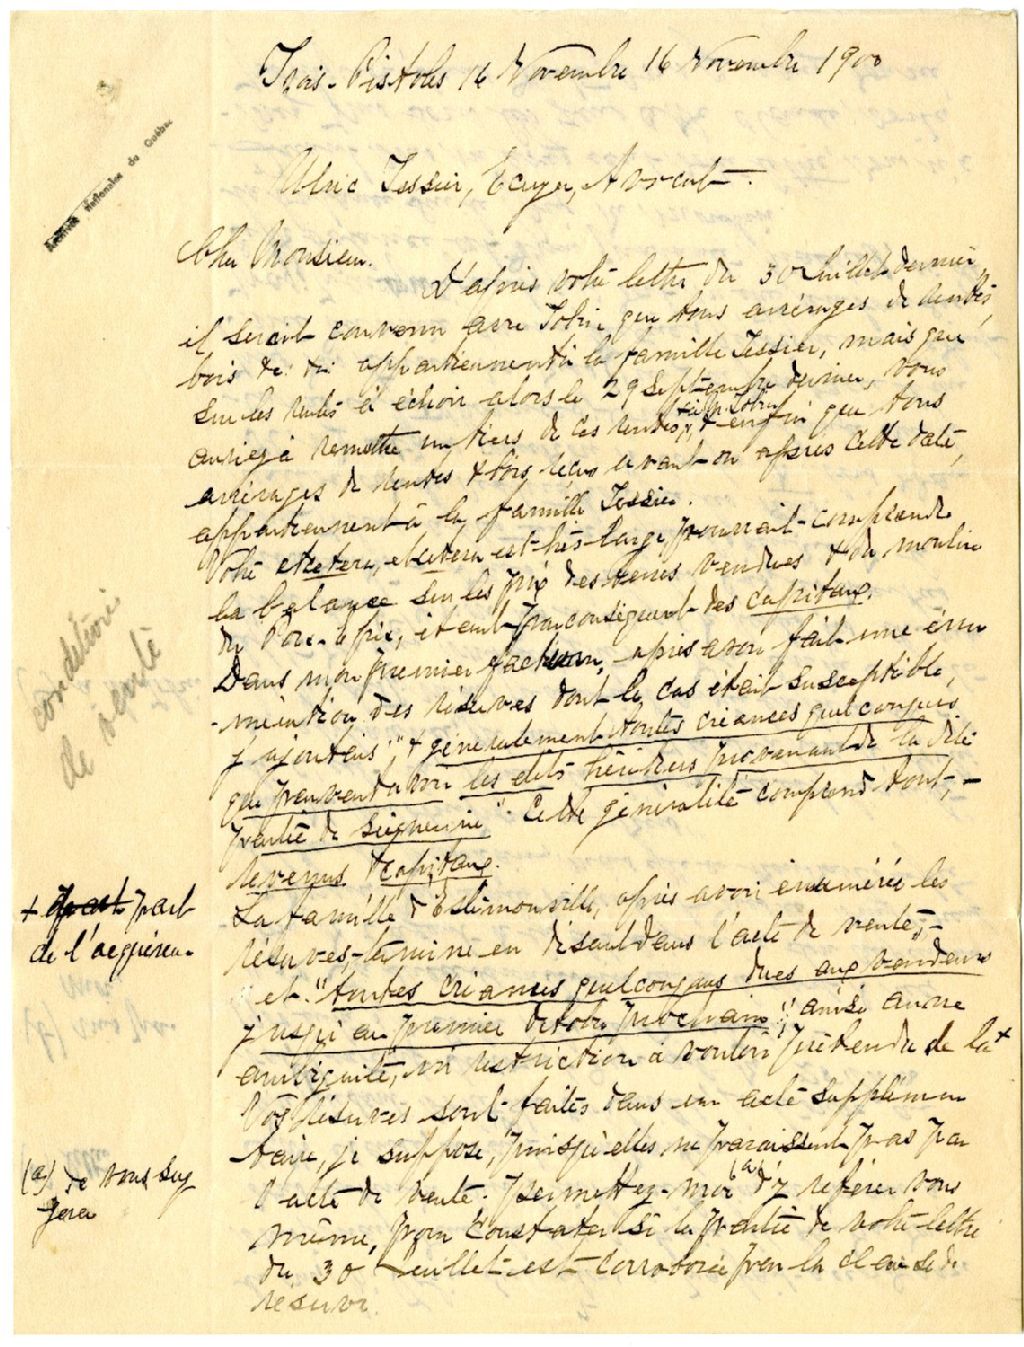 Trois-Pistoles 16 Novembre 16 Novembre 1900
Archives Nationales du Québec
Ulric Tessier, Ecuyer, Avocat.
Cher Monsieur.
D'après votre lettre du 30 Juillet dernier,
il serait convenu avec Tobin que tous arrérages de rentes,
bois &c &c appartiennent à la famille Tessier, mais que
sur les rentes à échoir alors le 29 Septembre dernier, vous
auriez à remettre un tiers de ces rentes & enfin que tous
arrérages de rentes & bois reçus avant ou après cette date,
appartiennent à la famille Tessier.
Votre etcetera, etcetera est très large, pourrait comprendre
la balance sur les prix des terres vendues & du moulin
du Porc-épic, étant par conséquent des capitaux.
Dans mon premier factum, après avoir fait une énu
-mération des réserves dont le cas était susceptible,
j'ajoutais; "& généralement toutes créances quelconques
que peuvent avoir les dits héritiers provenant de la dite
partie de Seigneurie" Cette généralité comprend tout, -
revenus & capitaux.
La famille d'Estimonville, après avoir énuméré les
réserves, termine en disant dans l'acte de vente; -
et "toutes créances quelconques dues aux vendeurs
jusqu'au premier octobre prochain"; ainsi aucune
ambiguité, ni restriction à vouloir prétendre de la +
+ part
de l'acquéreur
Vos réserves sont faites dans un acte supplémen
taire, je suppose, puisqu'elles ne paraissent pas par
l'acte de vente. Permettez-moi (a) d'y référer vous
(a) de vous sug
gérer
même, pour constater si la partie de votre lettre
du 30 Juillet est corroborée par la clause de
réserve.
condition
de vente